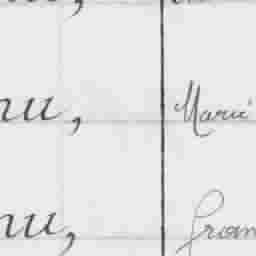 nu, Marie
nu, Fran